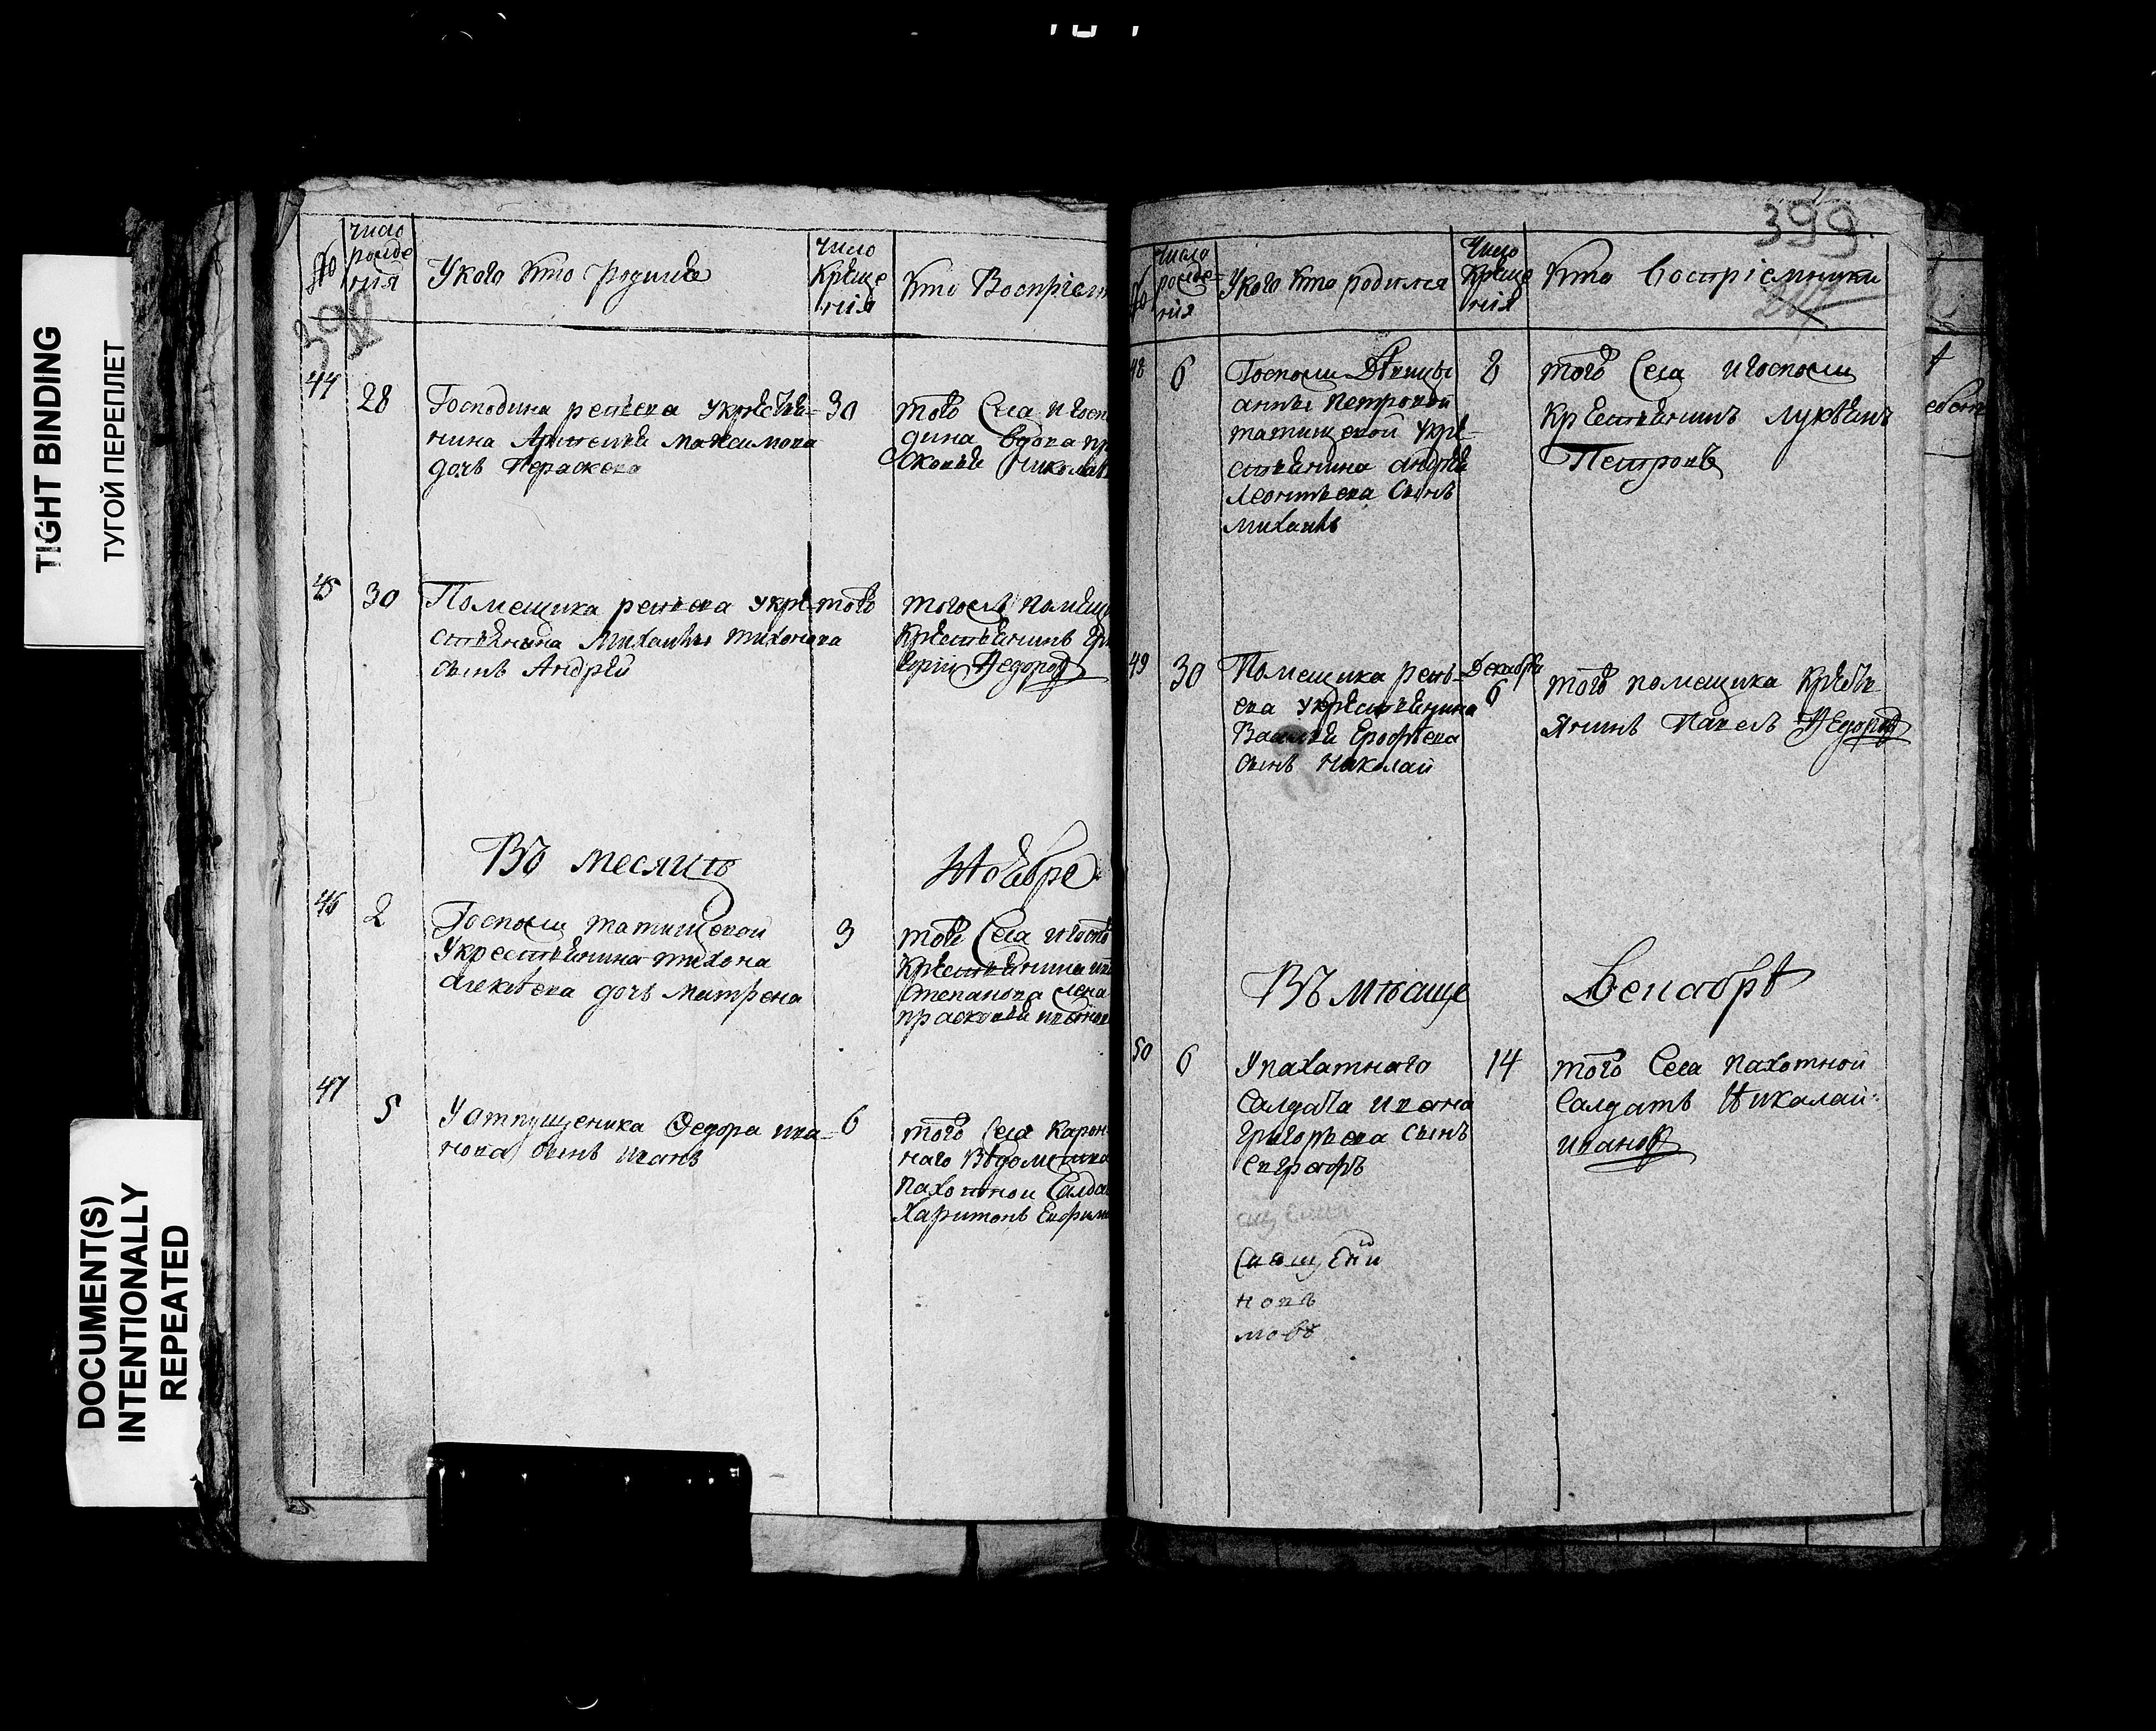 TIGHT BINDING
ТУГОЙ ПЕРЕПЛЕТ
DOCUMENT(S)
INTENTIONALLY
REPEATED
число рожде ния
У кого кто родился
число креще нія
кто Воспріем
398
44
28
Господина ретьева у крестья-
нина Максимова
дочь Параскева
30
того села и госп
дина вдова пр
сковья Никола
45
30
Помещика ретьева у кре-
стьянина Михаилы тихонова
сынъ Андрей
того
того помещ
крестьянинъ гри
горій Федоровъ
Въ месяце
Ноябре
46
2
Госпожи татищевой
у крестьянина тихона
алексѣева дочь матрена
3
того села и госпо
крестьянина
степанова жена
прасковья иванов
47
5
У отпущеника Федора ива-
нова сынъ иванъ
6
того села
наго ведомства
пахотной салда
Харитонъ Ефрим
399
число рожде- нія
У кого кто родился
число креще нія
кто воспріемники
48
6
Госпожи Дѣвицы
анны петровой
татищевой у кре-
стьянина андрея
леонтьева сынъ
михаилъ
8
того села и госпожи
крестьянинъ лукьянъ
Петровъ
49
30
Помещика реть-
ева у крестьянина
Василья Ерофѣева
сынъ николай
Декабря
6
того помещика крестья
янинъ Павелъ Федоровъ
Въ мѣсяце
Декабрѣ
50
6
У пахатнаго
салдата ивана
григорьева сынъ
евграфъ
14
того села пахотной
салдатъ Николай
ивановъ
попъ